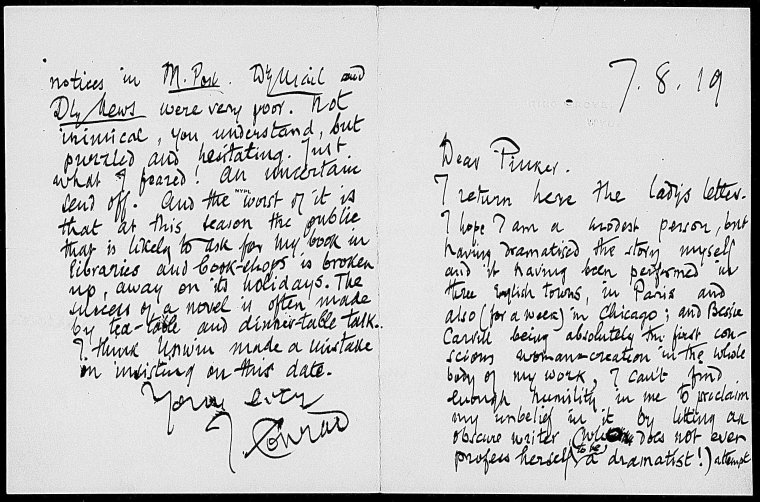 7.8.19
Dear Pinker.
I return here the lady's letter.
I hope I am a modest person, but
having dramatised the story myself
and it having been performed in
three English towns, in Paris and
also (for a week) in Chicago; and Bessie
Carvill being absolutely the first con-
scious woman-creation in the whole
body of my work, I can't find
enough humility in me to proclaim
my unbelief in it by letting an
obscure writer (who does not even
profess herself to be a dramatist!) attempt
notices in M. Post. Dly Mail and
Dly News were very poor. Not
inimical, you understand, but
puzzled and hesitating. Just
what I feared! An uncertain
NYPL
send off. And the worst of it is
that at this season the public
that is likely to ask for my book in
libraries and book-shops is broken
up, away on its holidays. The
success of a novel is often made
by tea-table and dinner-table talk.
I think Unwin made a mistake
in insisting on this date.
Yours ever
J. Conrad